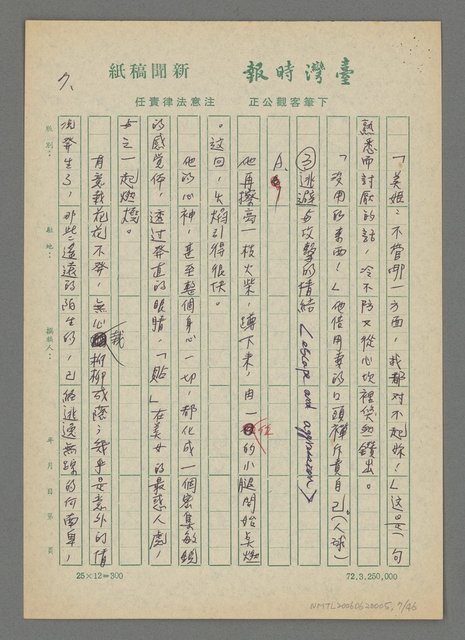 臺灣時報 新聞稿紙
下筆客觀公正 注意法律責任
7、
「美姬：不管哪一方面，我都對不起妳！」這是一句
熟悉而討厭的話，冷不防又從心坎裡鑽出。
「沒用的東西！」他借用妻的口頭禪斥責自己。（人球）
③逃避与攻擊的情結〈escape and aggression〉
A、
他再擦亮一枝火柴，蹲下來，由一的小腿開始点燃
。這回，火焰引得很快。
他的心神，甚至整個身心一切，都化成一個密集敏銳
的感覺体，透過發直的眼睛，「貼」在美女的最惑人處，
与之一起燃燒。
有意栽花花不發，無心栽柳柳成蔭；幾乎是意外的情
況發生了，那些遙遠的陌生的，已經逃逸無蹤的何南卑，
紙別：
駐地：
撰稿人：
年 月 日 第 頁
25×12=300
72.3.250,000
NMTL20060620005,7/46